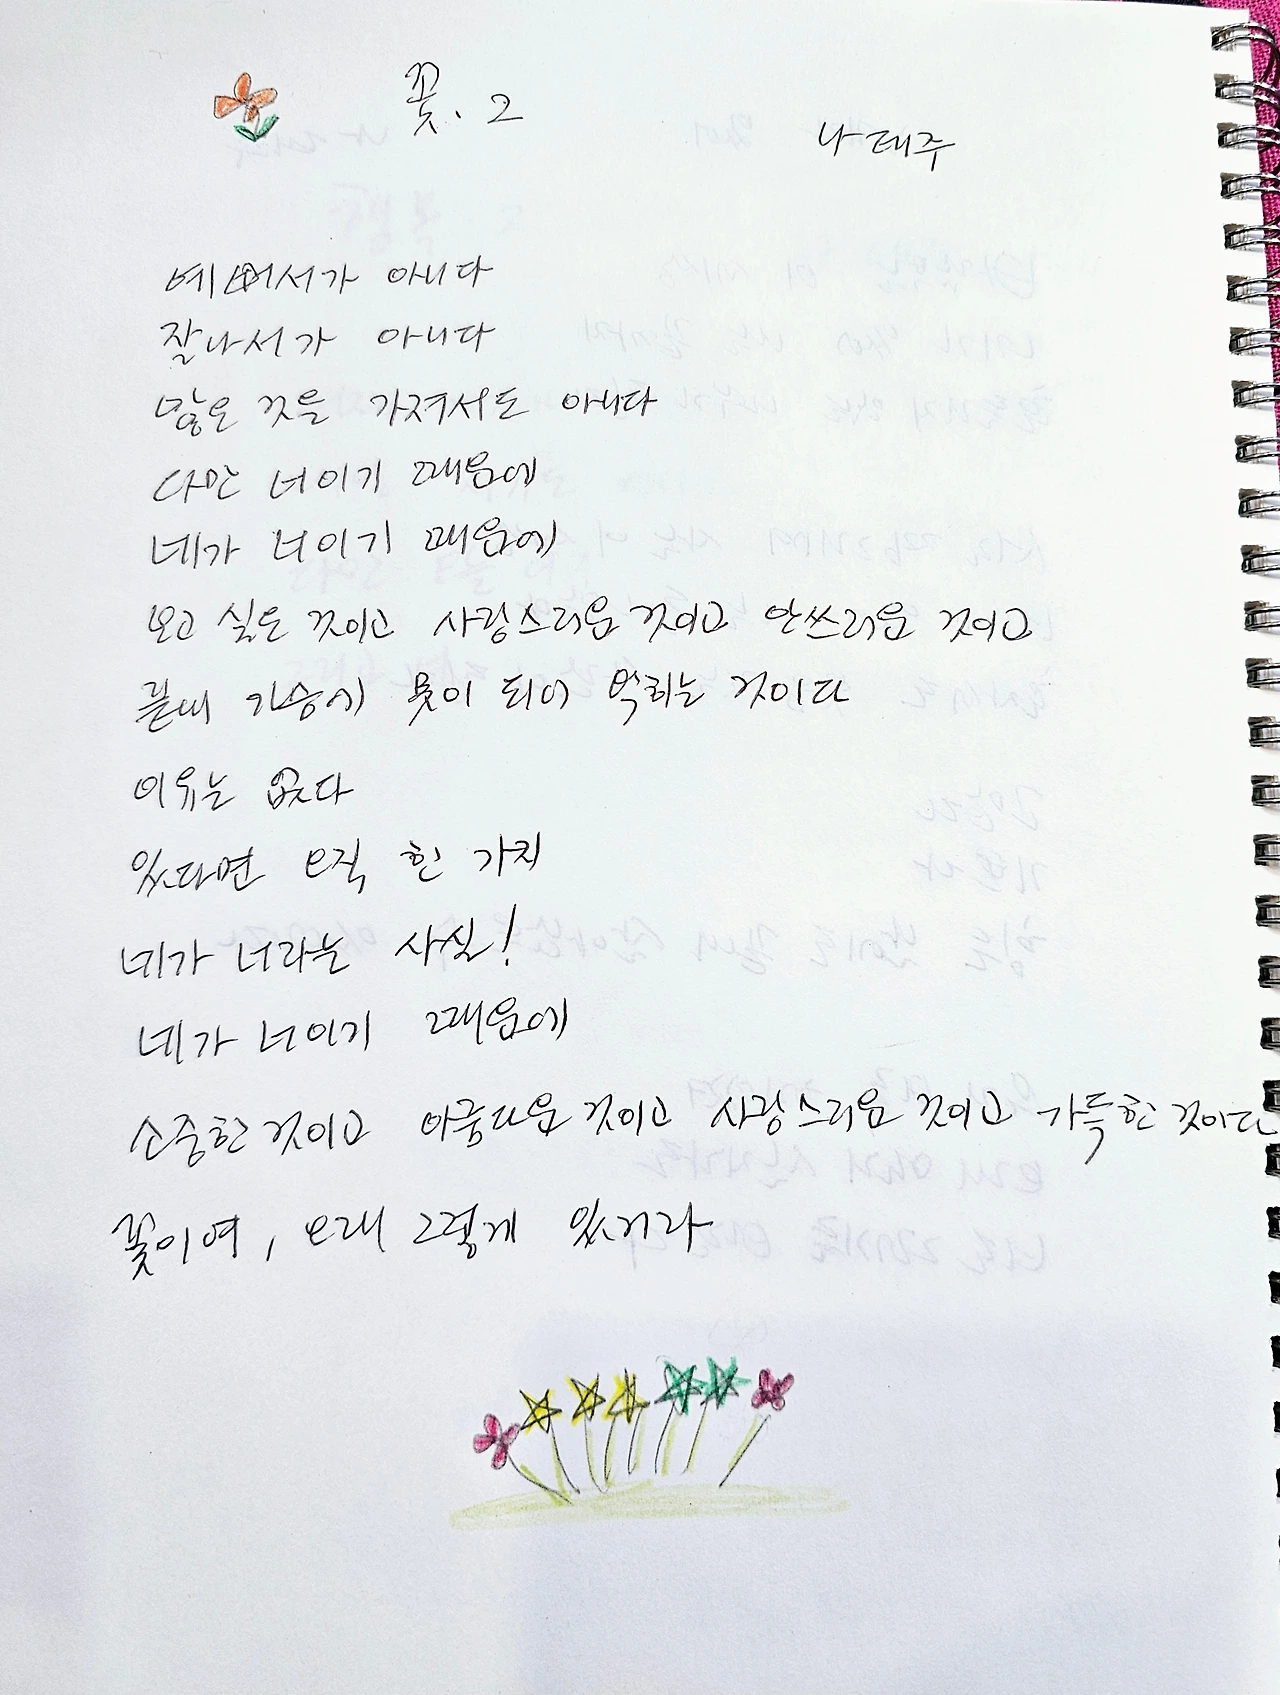 꽃. 2
나태주
예뻐서가 아니다
잘나서가 아니다
많은 것을 가져서도 아니다
다만 너이기 때문에
네가 너이기 때문에
보고 싶은 것이고 사랑스러운 것이고 안쓰러운 것이고
끝내 가슴에 못이 되어 박히는 것이다
이유는 없다
있다면 오직 한 가지
네가 너라는 사실!
네가 너이기 때문에
소중한 것이고 아름다운 것이고 사랑스러운 것이고 가득한 것이다
꽃이여, 오래 그렇게 있거라